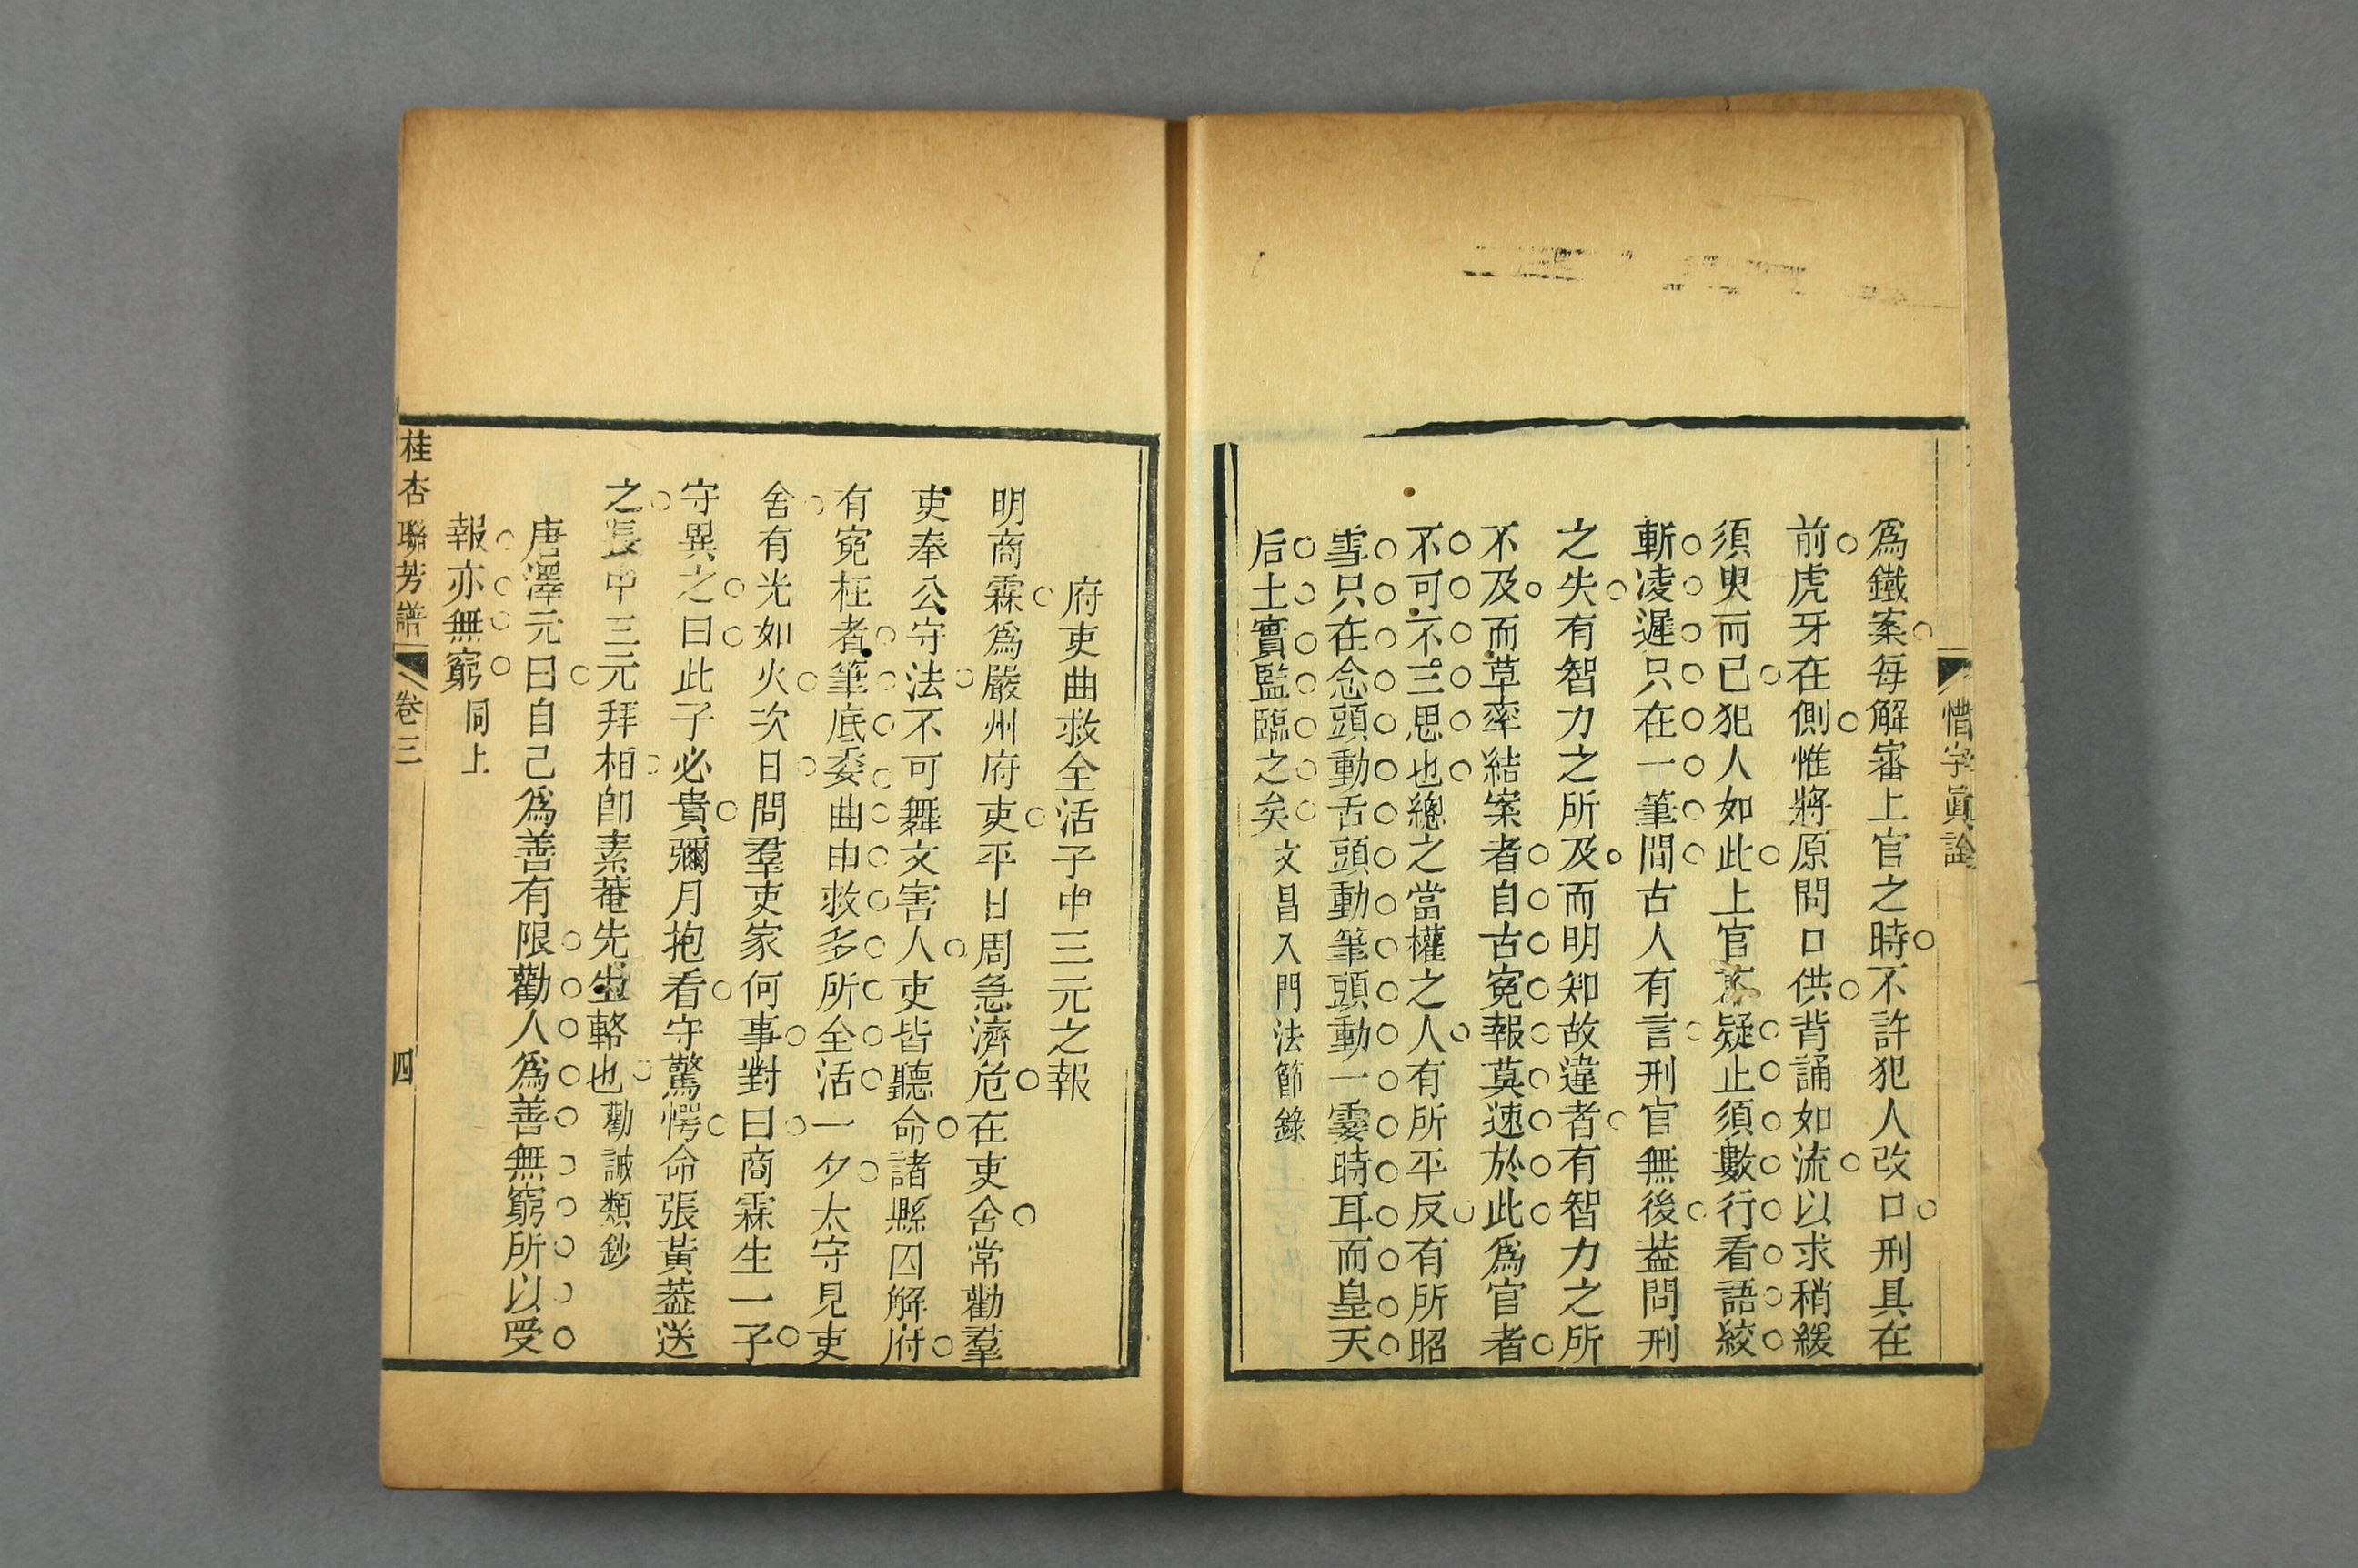 惜字眞詮
爲鐵案每解審上官之時不許犯人改口刑具在
前虎牙在側惟將原問口供背誦如流以求稍緩
須臾而已犯人如此上官不疑止須數行看語絞
斬凌遲只在一筆間古人有言刑官無後葢問刑
之失有智力之所及而明知故違者有智力之所
不及而草率結案者自古寃報莫速於此爲官者
不可不三思也總之當權之人有所平反有所昭
雪只在念頭動舌頭動筆頭動一霎時耳而皇天
后土實監臨之矣文昌入門法節錄
府吏曲救全活子中三元之報
明商霖爲嚴州府吏平日周急濟危在吏舍常勸羣
吏奉公守法不可舞文害人吏皆聽命諸縣囚解府
有寃枉者筆底委曲申救多所全活一夕太守見吏
舍有光如火次日問羣吏家何事對曰商霖生一子
守異之曰此子必貴彌月抱看守驚愕命張黃葢送
之長中三元拜相卽素菴先生輅也勸誡類鈔
唐澤元曰自己爲善有限勸人爲善無窮所以受
報亦無窮同上
桂杏聯芳譜 卷三 四